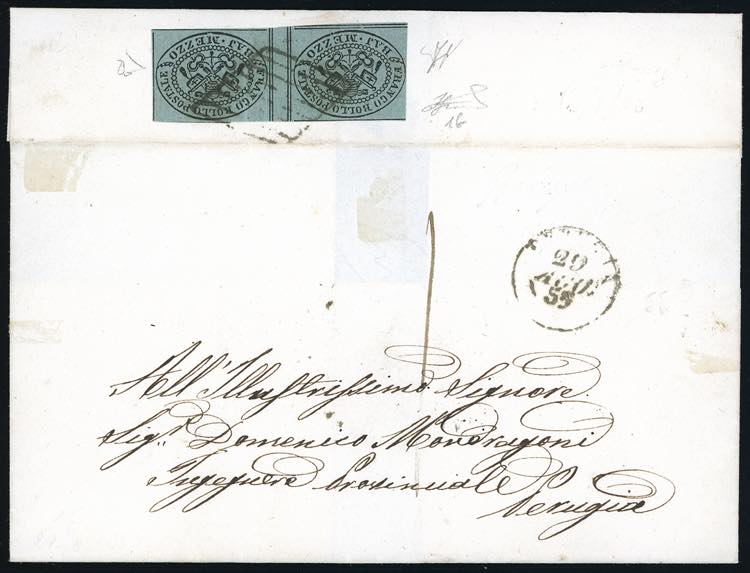 FRANCO BOLLO POSTALE
BAJ·MEZZO
FRANCO BOLLO POSTALE
BAJ·MEZZO
16
1
29
AGO.
55
All'Illustrissimo Signore
Sigr. Domenico Mondragoni
Ingegnere Provinciale
Perugia